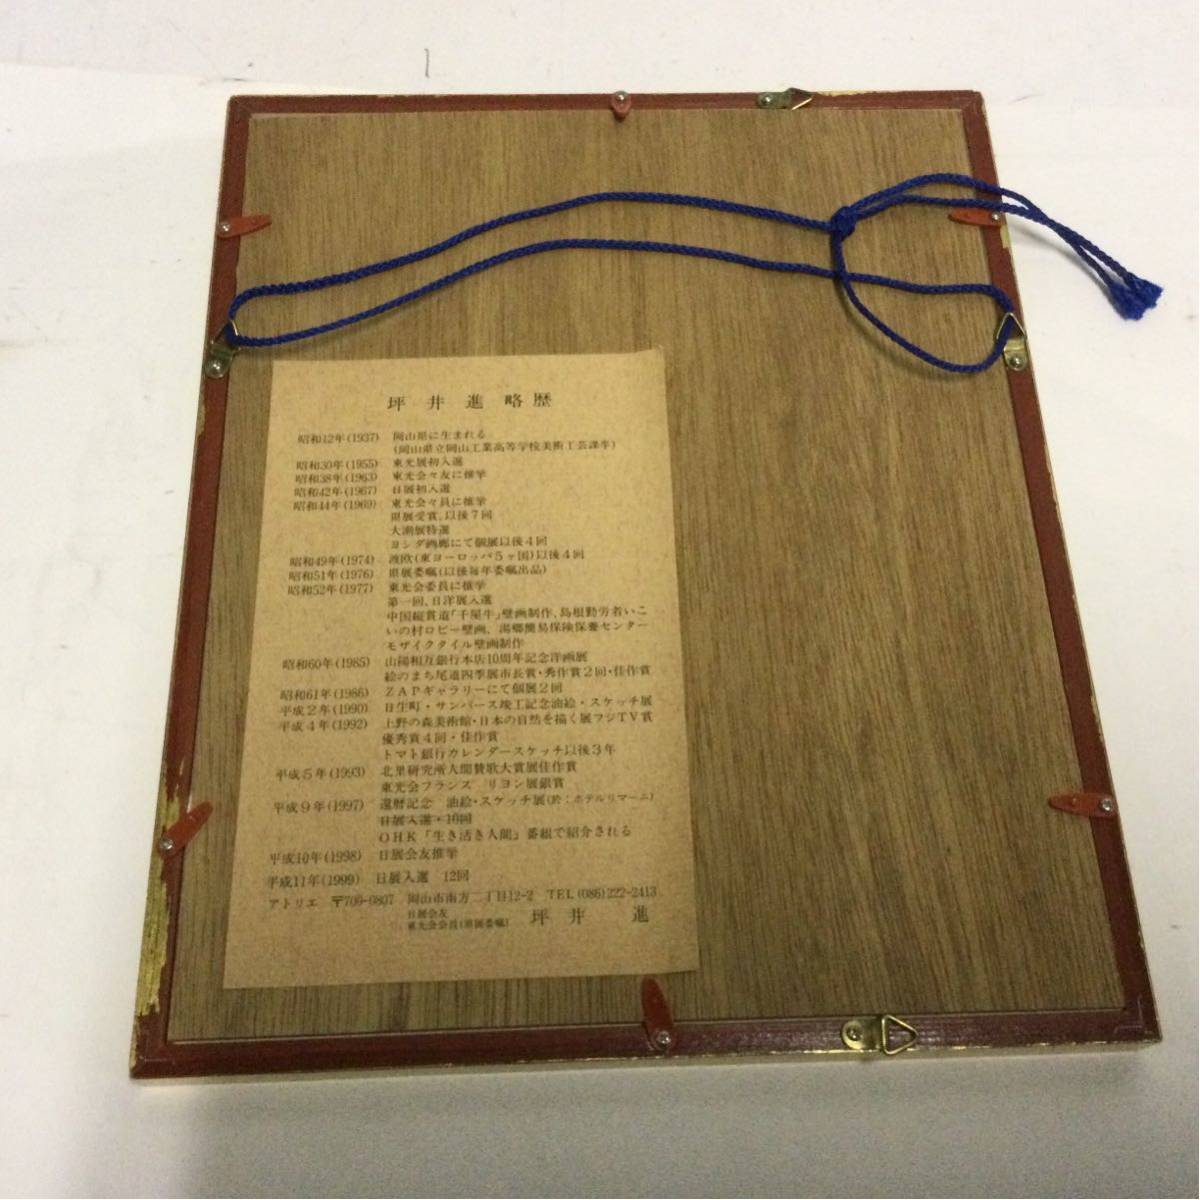 坪井進略歴
昭和12年(1937) 岡山県に生まれる
(岡山県立岡山工業高等学校美術工芸課卒)
昭和30年(1955) 東光展初入選
昭和38年(1963) 東光会々友に推挙
昭和42年(1967) 日展初入選
昭和44年(1969) 東光会々員に推挙
県展受賞、以後7回
大潮展特選
ヨシダ画廊にて個展以後4回
昭和49年(1974) 渡欧(東ヨーロッパ5ヶ国)以後4回
昭和51年(1976) 県展委嘱(以後毎年委嘱出品)
昭和52年(1977) 東光会委員に推挙
第一回、日洋展入選
中国縦貫道「千屋牛」壁画制作、島根勤労者いこ
いの村ロビー壁画、湯郷簡易保険保養センター
モザイクタイル壁画制作
昭和60年(1985) 山陽相互銀行本店10周年記念洋画展
絵のまち尾道四季展市長賞・秀作賞2回・佳作賞
昭和61年(1986) ZAPギャラリーにて個展2回
平成2年(1990) 日生町・サンバース竣工記念油絵・スケッチ展
平成4年(1992) 上野の森美術館・日本の自然を描く展フジTV賞
優秀賞4回・佳作賞
トマト銀行カレンダースケッチ以後3年
平成5年(1993) 北里研究所人間賛歌大賞展佳作賞
東光会フランス リヨン展銀賞
平成9年(1997) 還暦記念 油絵・スケッチ展(於:ホテルリマーニ)
日展入選・10回
OHK「生き活き人間」番組で紹介される
平成10年(1998) 日展会友推挙
平成11年(1999) 日展入選 12回
アトリエ 〒700-0807 岡山市南方二丁目12-2 TEL(086)222-2413
日展会友
東光会会員(県展委嘱) 坪井 進